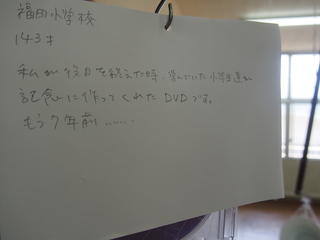 福田小学校
143才
私が役目を終えた時、学んでいた小学生達が
記念に作ってくれたDVDです。
もう7年前……